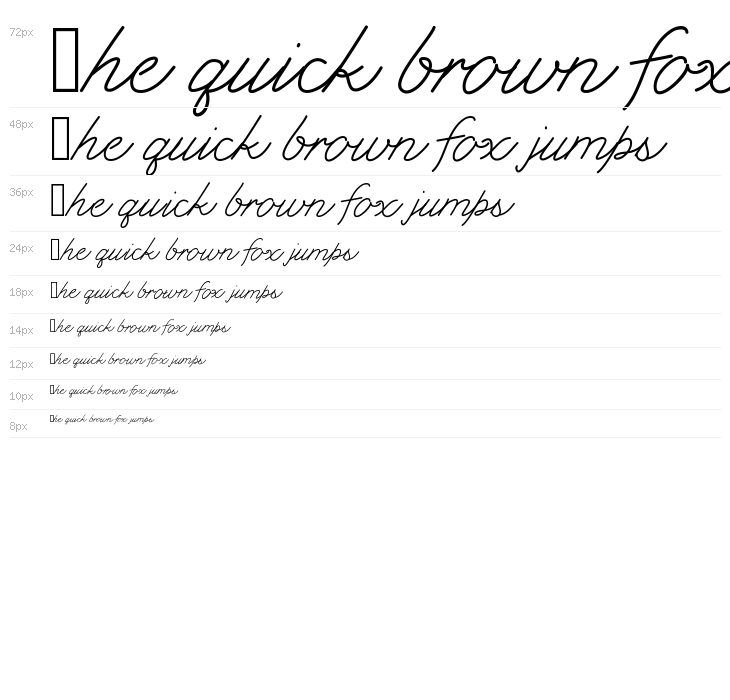 72px ▯he quick brown fox
48px ▯he quick brown fox jumps
36px ▯he quick brown fox jumps
24px ▯he quick brown fox jumps
18px ▯he quick brown fox jumps
14px ▯he quick brown fox jumps
12px ▯he quick brown fox jumps
10px ▯he quick brown fox jumps
8px ▯he quick brown fox jumps